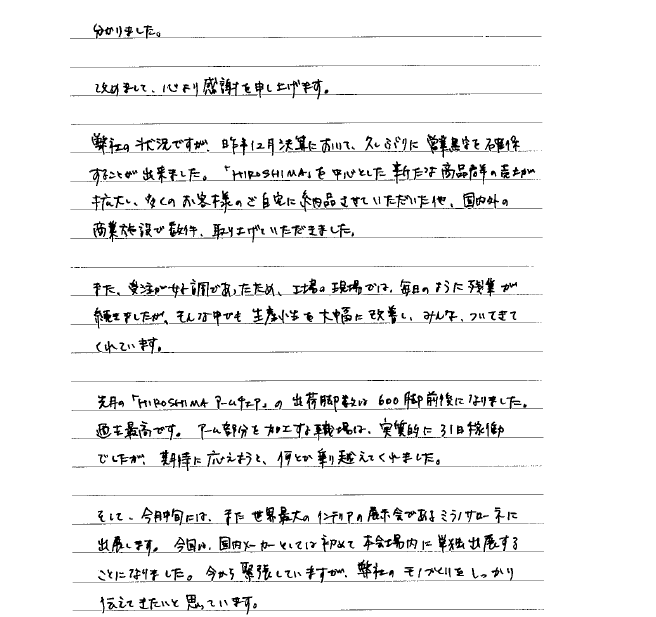 分かりました。
改めまして、心より感謝を申し上げます。
弊社の状況ですが、昨年12月決算において、久しぶりに営業黒字を確保
することが出来ました。「HIROSHIMA」を中心とした新たな商品群の売上が
拡大し、多くのお客様のご自宅に納品させていただいた他、国内外の
商業施設で数件、取り上げていただきました。
また、受注が好調であったため、工場の現場では、毎日のように残業が
続きましたが、そんな中でも生産性を大幅に改善し、みんな、ついてきて
くれています。
先月の「HIROSHIMAアームチェア」の出荷脚数は600脚前後になりました。
過去最高です。アーム部分を加工する職場は、実質的に31日稼働
でしたが、期待に応えようと、何とか乗り越えてくれました。
そして、今月中旬には、また世界最大のインテリアの展示会であるミラノサローネに
出展します。今回は、国内メーカーとしては初めて本会場内に単独出展する
ことになりました。今から緊張していますが、弊社のモノづくりをしっかり
伝えてきたいと思っています。